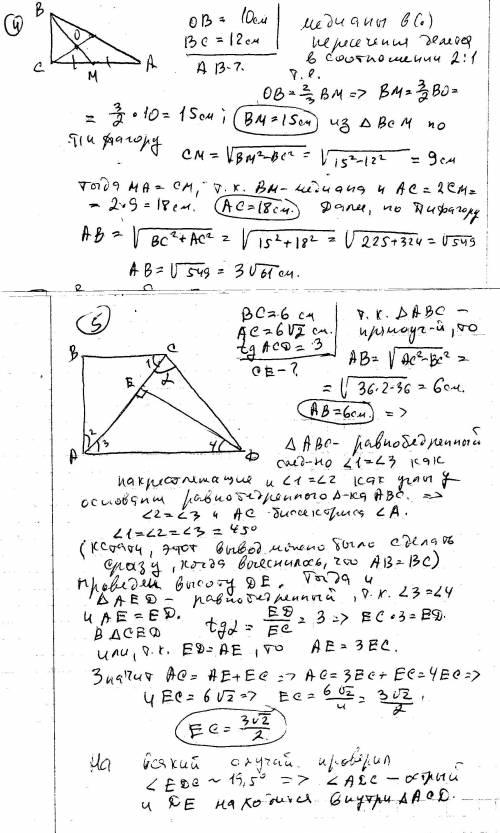 4
B
O
C M A
OB = 10см
BC = 12см
AB-?
медианы в (·)
пересечения делятся
в соотношении 2:1
т.е.
OB = 2/3 BM => BM = 3/2 BO =
= 3/2 · 10 = 15см; BM = 15см из △BCM по
Пифагору
CM = √BM²-BC² = √15²-12² = 9см
Тогда MA = CM, т.к. BM - медиана и AC = 2CM =
= 2·9 = 18см. AC = 18см. Далее, по Пифагору
AB = √BC²+AC² = √15²+18² = √225+324 = √549
AB = √549 = 3√61 см.
5
B C
1 α
E
2 3 4
A D
BC = 6 см
AC = 6√2 см.
tg ACD = 3
CE-?
т.к. △ABC -
прямоуг-й, то
AB = √AC²-BC² =
= √36·2-36 = 6см.
AB = 6см. =>
△ABC - равнобедренный
след-но ∠1=∠3 как
накрестлежащие и ∠1=∠2 как углы у
основания равнобедренного △-ка ABC. =>
∠2=∠3 и AC биссектриса ∠A.
∠1=∠2=∠3=45°
(кстати, этот вывод можно было сделать
сразу, когда выяснилось, что AB=BC)
Проведем высоту DE. Тогда и
△AED - равнобедренный, т.к. ∠3=∠4
и AE=ED.
В △CED tgα = ED/EC = 3 => EC·3=ED.
или, т.к. ED=AE, то AE=3EC.
Значит AC = AE+EC => AC = 3EC+EC = 4EC =>
4EC = 6√2 => EC = 6√2/4 = 3√2/2.
EC = 3√2/2.
На всякий случай проверил
=> - острый
и DE находится внутри △ACD.